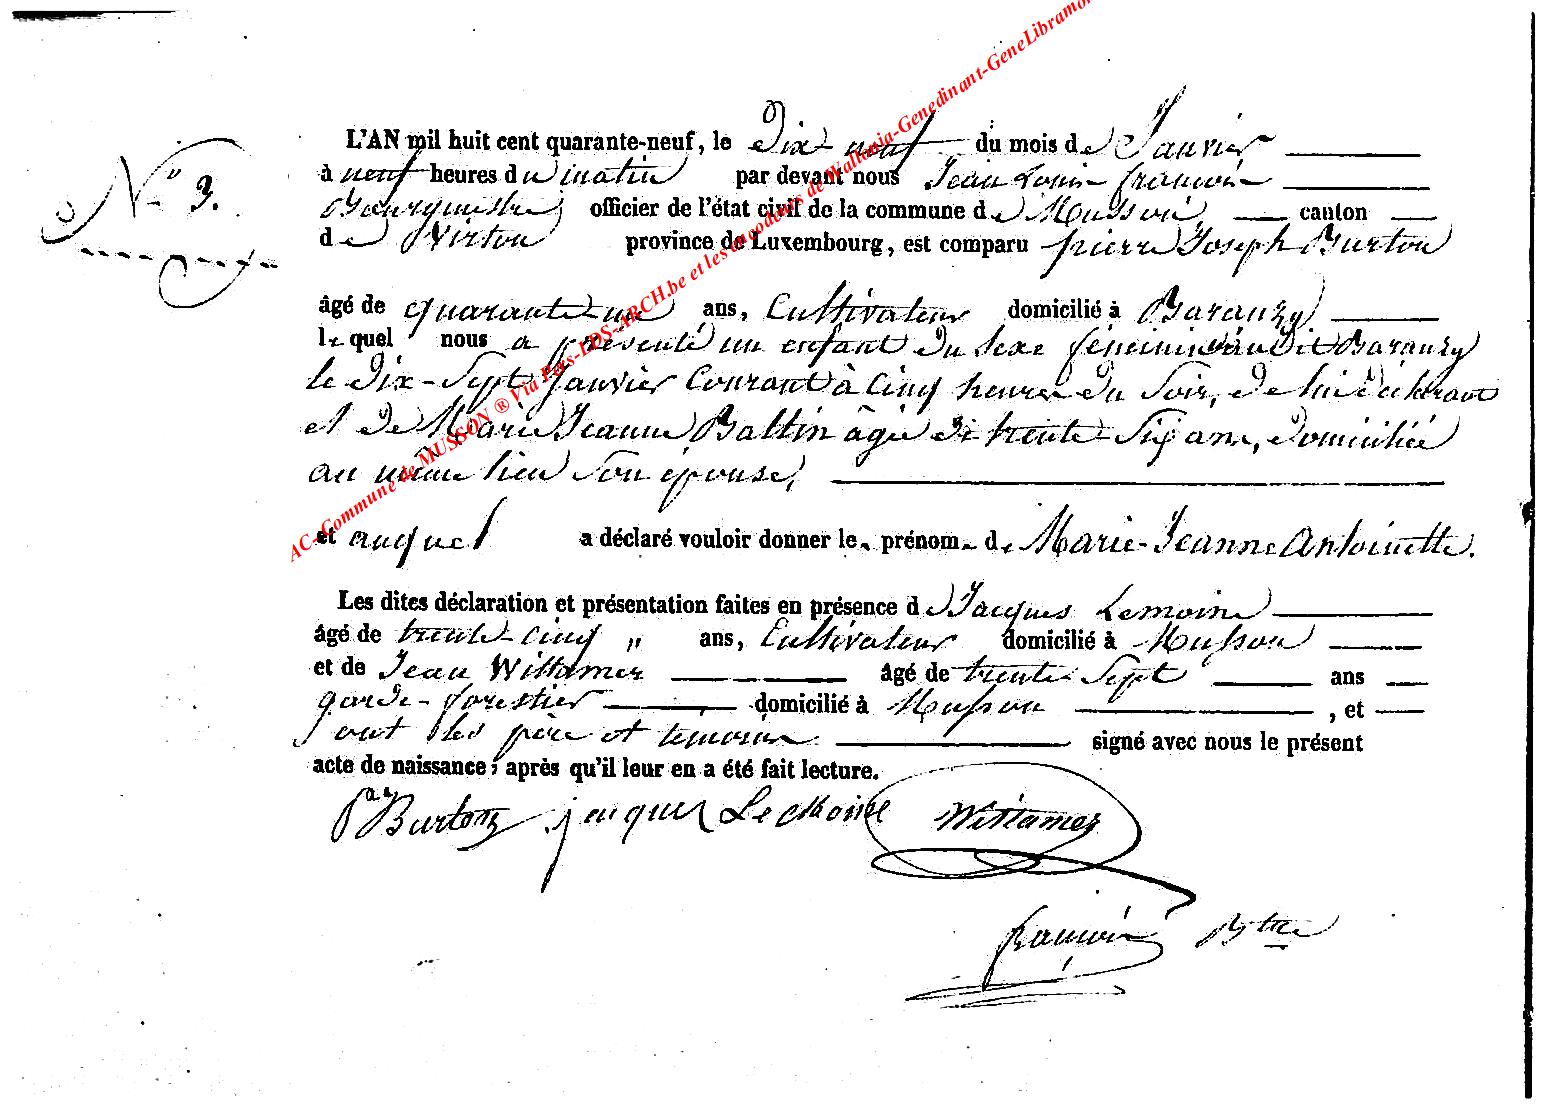 AC-Commune de MUSSON ® Via Pers-LDS-ARCH.be et les encodeurs de Wallonia-Genedinant-GeneLibramon
L'AN mil huit cent quarante-neuf, le Dix neuf du mois de Janvier
N° 3.
à neuf heures du matin par devant nous Jean Louis françois
Bourgmestre officier de l'état civil de la commune de Musson, canton
de Virton province de Luxembourg, est comparu pierre Joseph Burton
âgé de quarante-un ans, Cultivateur domicilié à Baranzy
lequel nous a présenté un enfant du sexe féminin Baranzy
le Dix-Sept Janvier Courant à Cinq heures du Soir, de lui déclarant
et de Marie Jeanne Battin âgée de trente-Six ans, domiciliée
au même lieu Son épouse,
et auquel a déclaré vouloir donner le prénom de Marie-Jeanne Antoinette.
Les dites déclaration et présentation faites en présence de Jacques Lemoine
âgé de trente-cinq " ans, Cultivateur domicilié à Musson
et de Jean Wittamer âgé de trente Sept ans
garde-forestier domicilié à Musson , et
ont les père et témoins signé avec nous le présent
acte de naissance, après qu'il leur en a été fait lecture.
Burton jacques Le Moine Wittamer
françois Btre